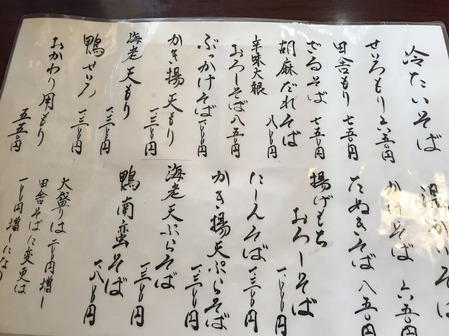 冷たいそば
せいろもり 六五〇円
田舎もり 七五〇円
ざるそば 七五〇円
胡麻だれそば 八〇〇円
辛味大根
おろしそば 八五〇円
ぶっかけそば 一一〇〇円
かき揚天もり 一三〇〇円
海老天もり 一三〇〇円
鴨せいろ 一八〇〇円
おかわり用もり 五五〇円
温かいそば
かけそば 六五〇円
たぬきそば 八五〇円
揚げもち
おろしそば
にしんそば 一一〇〇円
かき揚天ぷらそば 一三〇〇円
海老天ぷらそば 一三〇〇円
鴨南蛮そば 一八〇〇円
大盛りは二〇〇円増し
田舎そばに変更は
一〇〇円増しになり